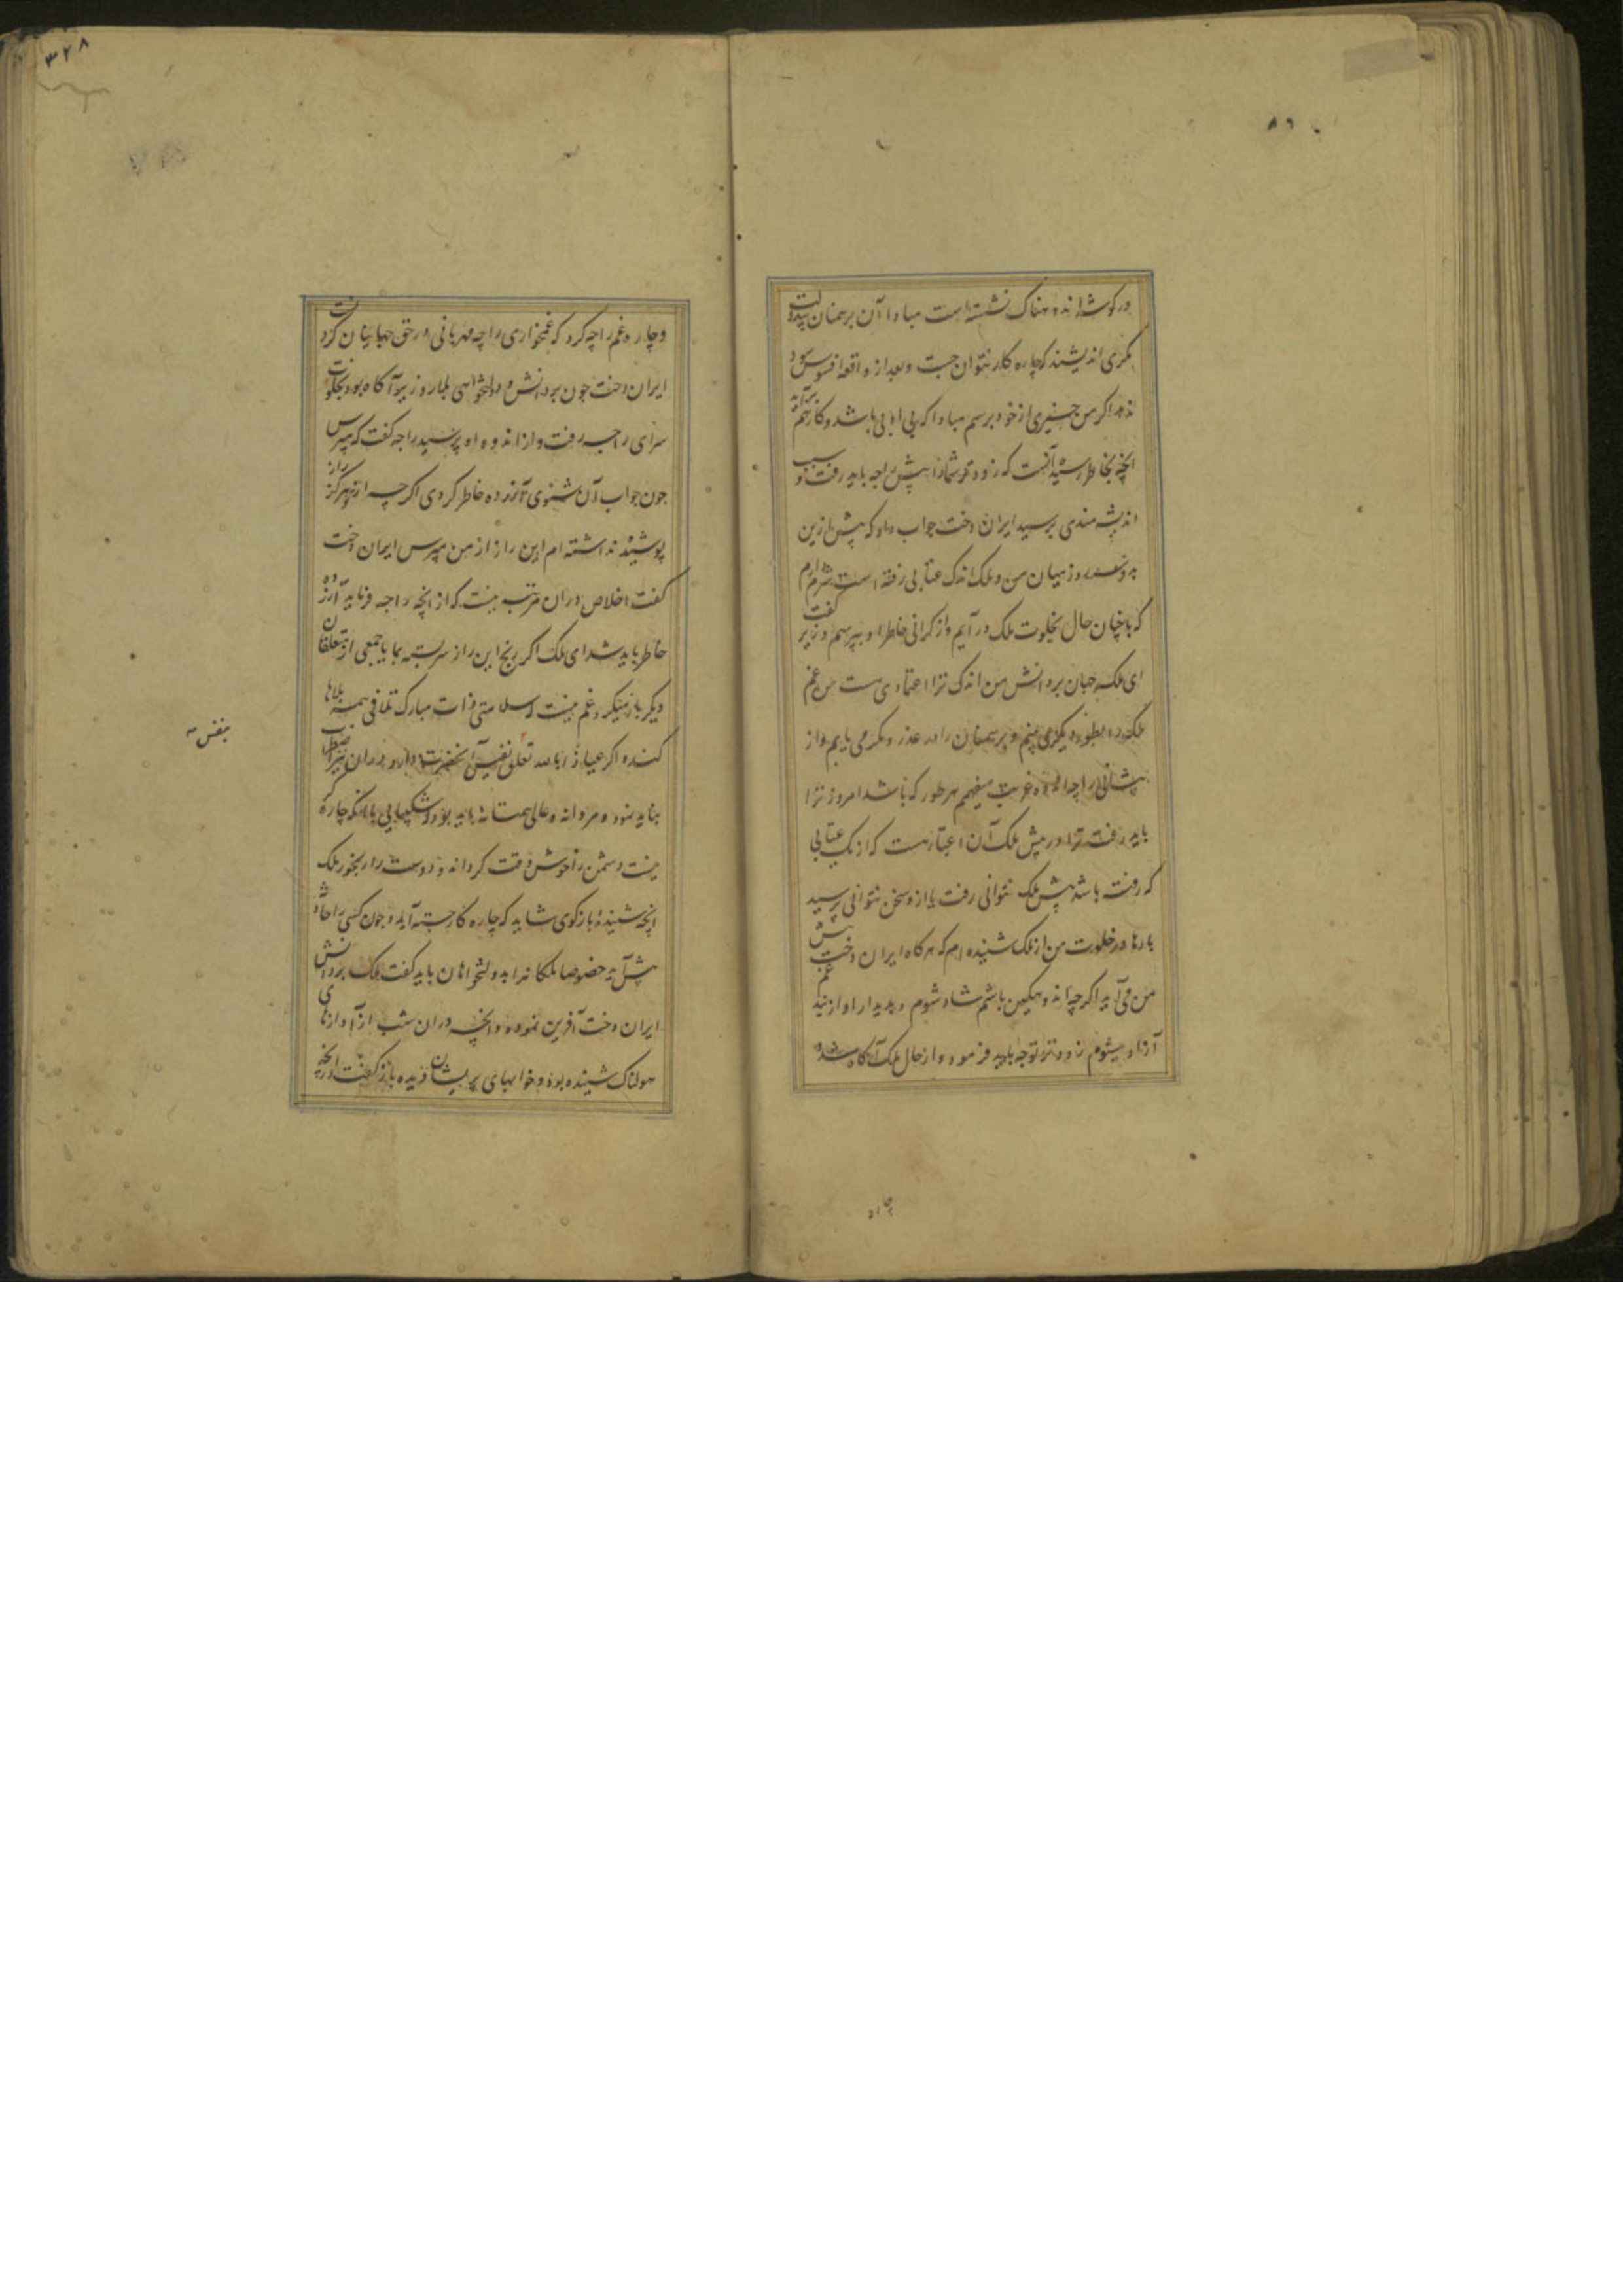 در گوشه اندوهناک نشسته است مبادا آن برهمنان بیدولت
مکری اندیشند که چاره کار نتوان جست و بعد از واقعه افسوس سود
ندهد اگر من چیزی از خود برسم مبادا که بی ادبی باشد و کار بهم برآید
انچه بخاطر رسیده آنست که زودتر شما را پیش راجه باید رفت و سبب
اندیشه مندی پرسید ایران دخت جواب داد که پیش ازین
روز میان من و ملک اندک عتابی رفته است شرم دارم
که باخچنان حال بخلوت ملک درآیم و از گرانی خاطر او بپرسم وزیر گفت
ای ملکه جهان بر دانش من اندک ترا اعتمادی هست من غم
ملک را بطور دیگر می بینم و برهمنان را در عذر و مکر می یابم و از
پیشانی راجه اراده غریب میفهمم هر طور که باشد امروز ترا
باید رفت ترا در پیش ملک آن اعتبار هست که از یک عتابی
که رفته باشد پیش ملک نتوانی رفت یا ازو سخن نتوانی پرسید
بارها در خلوت من از ملک شنیده ام که هرگاه ایران دخت پیش
من می آید اگرچه اندوهگین باشم شاد شوم و بدیدار او از بند غم
آزاد میشوم زودتر توجه باید فرمود و از حال ملک آگاه شد و
چاره
۸۶
۳۲۸
و چاره غم راجه کرد که غمخواری راجه مهربانی در حق جهانیان کردنست
ایران دخت چون بر دانش و دولتخواهی بلار وزیر آگاه بود بخلوت
سرای راجه رفت و از اندوه او پرسید راجه گفت که مپرس
چون جواب آن شنوی آزرده خاطر گردی اگرچه از تو هرگز راز
پوشیده نداشته ام این راز از من مپرس ایران دخت
گفت اخلاص دران مرتبه نیست که از انچه راجه فرماید آزرده
خاطر باید شد ای ملک اگر رنج این راز سربسته بما یا جمعی از متعلقان
دیگر باز میگردد غم نیست که سلامتی ذات مبارک تلافی همه بلاها
کند و اگر عیاذا بالله تعلق بنفس آنحضرت دارد دران نیز اضطراب
نباید نمود و مردانه و عالی همتانه باید بود و شکیبایی با آنکه چاره گر
نیست دشمن را خوش وقت گرداند و دوست را رنجور ملک
انچه شنیده بازگوی شاید که چاره کار جسته آید و چون کسی را حادثه
پیش آید خصوصا ملکانرا بدولتخواهان باید گفت ملک بر دانش
ایران دخت آفرین نموده و انچه دران شب از آوازهای
هولناک شنیده بود و خوابهای پریشان دیده باز گفت و از انچه
بنفس